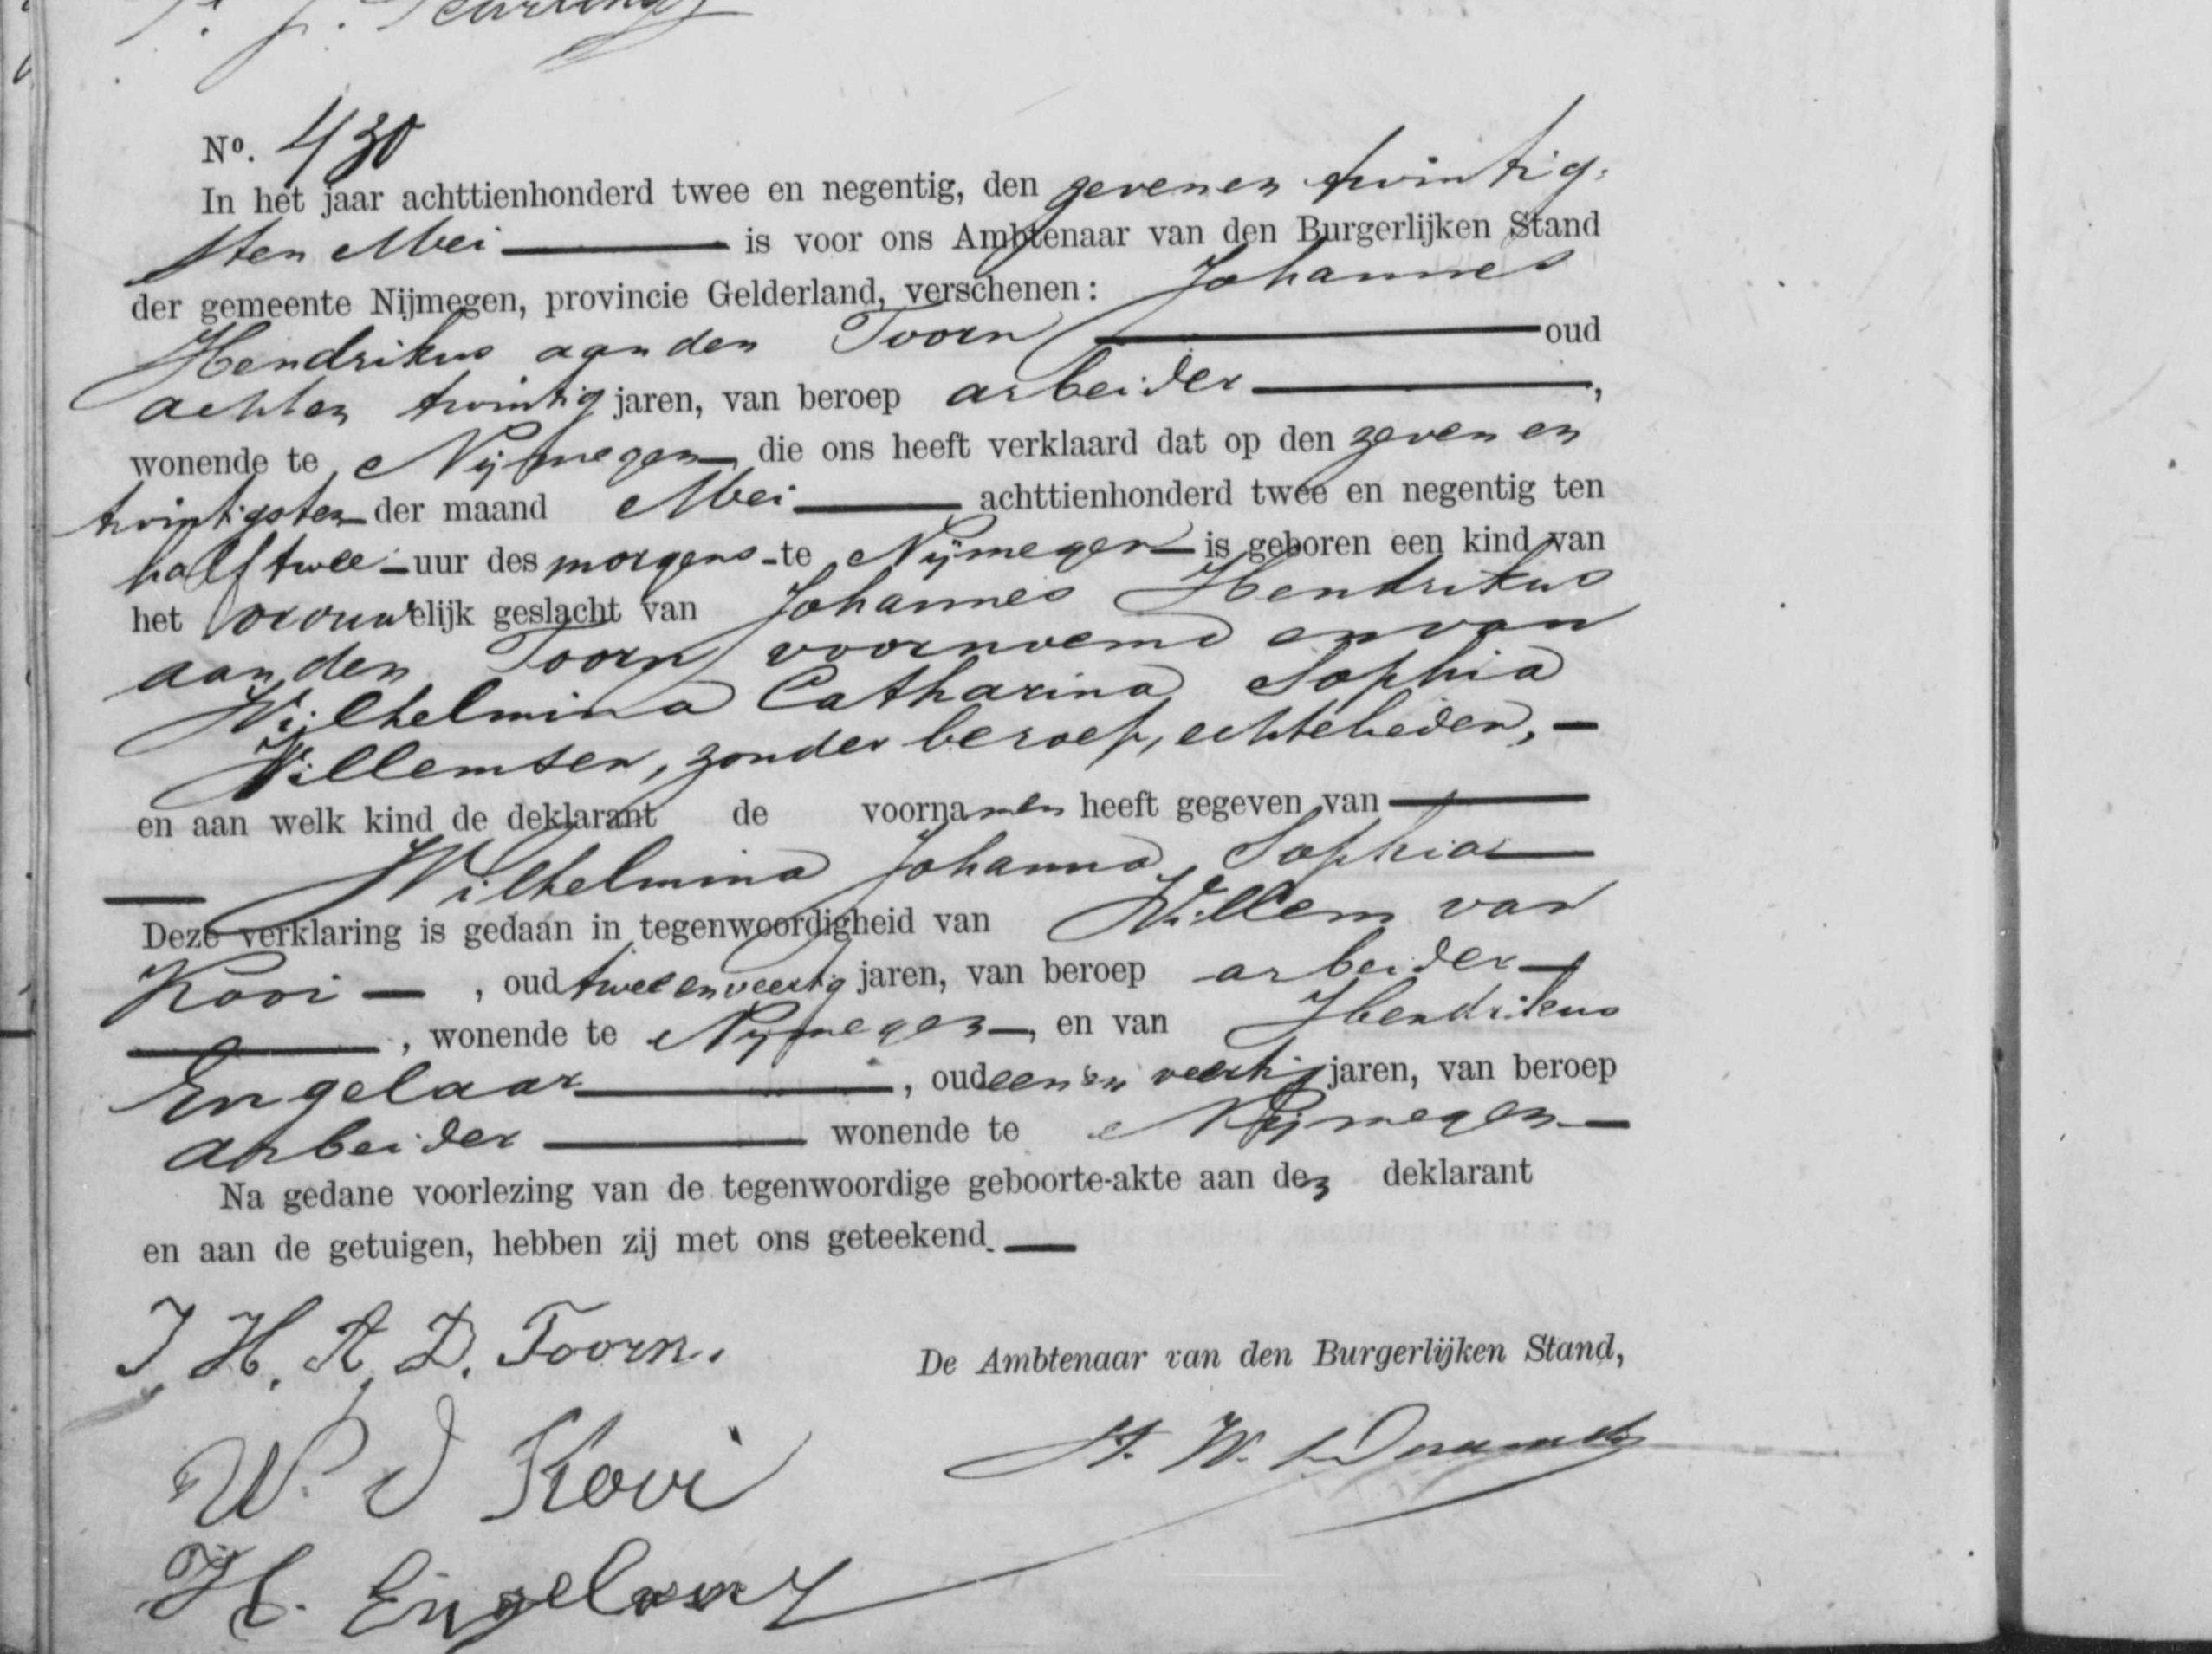 No. 430
In het jaar achttienhonderd twee en negentig, den zevenen twintig-
sten Mei is voor ons Ambtenaar van den Burgerlijken Stand
der gemeente Nijmegen, provincie Gelderland, verschenen: Johannes
Hendrikus aan den Toorn oud
achten twintig jaren, van beroep arbeider,
wonende te Nijmegen die ons heeft verklaard dat op den zeven en
twintigsten der maand Mei achttienhonderd twee en negentig ten
half twee uur des morgens te Nijmegen is geboren een kind van
het vrouwelijk geslacht van Johannes Hendrikus
aan den Toorn voornoemd en van
Wilhelmina Catharina Sophia
Willemsen, zonder beroep, echtelieden,
en aan welk kind de deklarant de voornamen heeft gegeven van
Wilhelmina Johanna Sophia
Deze verklaring is gedaan in tegenwoordigheid van Willem van
Kooi, oud twee en veertig jaren, van beroep arbeider
, wonende te Nijmegen, en van Hendrikus
Engelaar, oud een en veertig jaren, van beroep
arbeider wonende te Nijmegen
Na gedane voorlezing van de tegenwoordige geboorte-akte aan den deklarant
en aan de getuigen, hebben zij met ons geteekend.
J. H. A. D. Toorn.
De Ambtenaar van den Burgerlijken Stand,
W. V Kooi
H. Engelaar